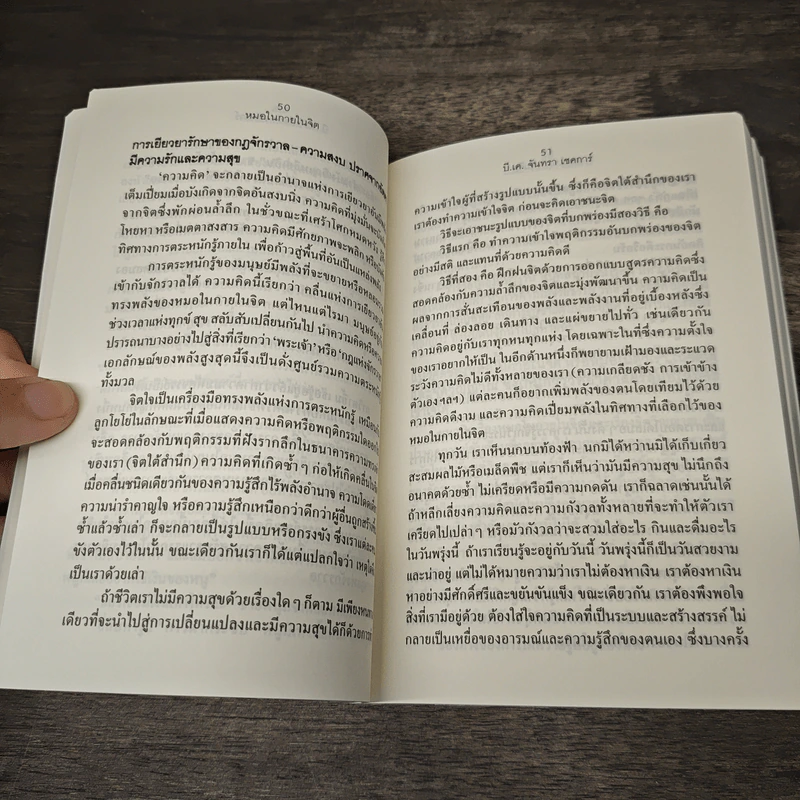 50
หมอในกายในจิต
การเยียวยารักษาของกฎจักรวาล – ความสงบ ปราศจาก
มีความรักและความสุข
'ความคิด' จะกลายเป็นอำนาจแห่งการเยียวยาอัน
เต็มเปี่ยมเมื่อบังเกิดจากจิตอันสงบนิ่ง ความคิดที่มุ่งมั่น
จากจิตซึ่งพักผ่อนล้ำลึก ในชั่วขณะที่เศร้าโศกหมดหวัง
โหยหา หรือเมตตาสงสาร ความคิดมีศักยภาพจะพลิก
ทิศทางการตระหนักรู้ภายใน เพื่อก้าวสู่พื้นที่อันเป็นแหล่งพลัง
การตระหนักรู้ของมนุษย์มีพลังที่จะขยายหรือ
เข้ากับจักรวาลได้ ความคิดนี้เรียกว่า คลื่นแห่งการเยียวยา
ทรงพลังของหมอในกายในจิต แต่ไหนแต่ไรมา มนุษย์
ช่วงเวลาแห่งทุกข์ สุข สลับสับเปลี่ยนกันไป นำความคิดหรือ
ปรารถนาบางอย่างไปสู่สิ่งที่เรียกว่า 'พระเจ้า' หรือ 'กฎแห่งจักรวาล
เอกลักษณ์ของพลังสูงสุดนี้จึงเป็นดั่งศูนย์รวมความตระหนัก
ทั้งมวล
จิตใจเป็นเครื่องมือทรงพลังแห่งการตระหนักรู้ เหมือน
ลูกโยโย่ในลักษณะที่เมื่อแสดงความคิดหรือพฤติกรรมใดออก
จะสอดคล้องกับพฤติกรรมที่ฝังรากลึกในธนาคารความทรง
ของเรา (จิตใต้สำนึก) ความคิดที่เกิดซ้ำๆ ก่อให้เกิดคลื่น
เมื่อคลื่นชนิดเดียวกันของความรู้สึกไร้พลังอำนาจ ความโดดเดี่ยว
ความน่ารำคาญใจ หรือความรู้สึกเหนือกว่าดีกว่าผู้อื่นถูกสร้าง
ซ้ำแล้วซ้ำเล่า ก็จะกลายเป็นรูปแบบหรือกรงขัง ซึ่งเราแต่ละ
ขังตัวเองไว้ในนั้น ขณะเดียวกันเราก็ได้แต่แปลกใจว่า เหตุใด
เป็นเราด้วยเล่า
ถ้าชีวิตเราไม่มีความสุขด้วยเรื่องใดๆ ก็ตาม มีเพียงหนทาง
เดียวที่จะนำไปสู่การเปลี่ยนแปลงและมีความสุขได้ก็ด้วยการ
51
บี.เค. จันทรา เชคการ์
ความเข้าใจผู้ที่สร้างรูปแบบนั้นขึ้น ซึ่งก็คือจิตใต้สำนึกของเรา
เราต้องทำความเข้าใจจิต ก่อนจะคิดเอาชนะจิต
วิธีจะเอาชนะรูปแบบของจิตที่บกพร่องมีสองวิธี คือ
วิธีแรก คือ ทำความเข้าใจพฤติกรรมอันบกพร่องของจิต
อย่างมีสติ และแทนที่ด้วยความคิดดี
วิธีที่สอง คือ ฝึกฝนจิตด้วยการออกแบบสูตรความคิดซึ่ง
สอดคล้องกับความล้ำลึกของจิตและมุ่งพัฒนาขึ้น ความคิดเป็น
ผลจากการสั่นสะเทือนของพลังและพลังงานที่อยู่เบื้องหลังซึ่ง
เคลื่อนที่ ล่องลอย เดินทาง และแผ่ขยายไปทั่ว เช่นเดียวกัน
ความคิดอยู่กับเราทุกหนทุกแห่ง โดยเฉพาะในที่ซึ่งความตั้งใจ
ของเราอยากให้เป็น ในอีกด้านหนึ่งก็พยายามเฝ้ามองและระแวด
ระวังความคิดไม่ดีทั้งหลายของเรา (ความเกลียดชัง การเข้าข้าง
ตัวเอง ฯลฯ) แต่ละคนก็อยากเพิ่มพลังของตนโดยเทียมไว้ด้วย
ความคิดดีงาม และความคิดเปี่ยมพลังในทิศทางที่เลือกไว้ของ
หมอในกายในจิต
ทุกวัน เราเห็นนกบนท้องฟ้า นกมิได้หว่านมิได้เก็บเกี่ยว
สะสมผลไม้หรือเมล็ดพืช แต่เราก็เห็นว่ามันมีความสุข ไม่นึกถึง
อนาคตด้วยซ้ำ ไม่เครียดหรือมีความกดดัน เราก็ฉลาดเช่นนั้นได้
ถ้าหลีกเลี่ยงความคิดและความกังวลทั้งหลายที่จะทำให้ตัวเรา
เครียดไปเปล่าๆ หรือมัวกังวลว่าจะสวมใส่อะไร กินและดื่มอะไร
ในวันพรุ่งนี้ ถ้าเราเรียนรู้จะอยู่กับวันนี้ วันพรุ่งนี้ก็เป็นวันสวยงาม
และน่าอยู่ แต่ไม่ได้หมายความว่าเราไม่ต้องหาเงิน เราต้องหาเงิน
หาอย่างมีศักดิ์ศรีและขยันขันแข็ง ขณะเดียวกัน เราต้องพึงพอใจ
สิ่งที่เรามีอยู่ด้วย ต้องใส่ใจความคิดที่เป็นระบบและสร้างสรรค์ ไม่
กลายเป็นเหยื่อของอารมณ์และความรู้สึกของตนเอง ซึ่งบางครั้ง